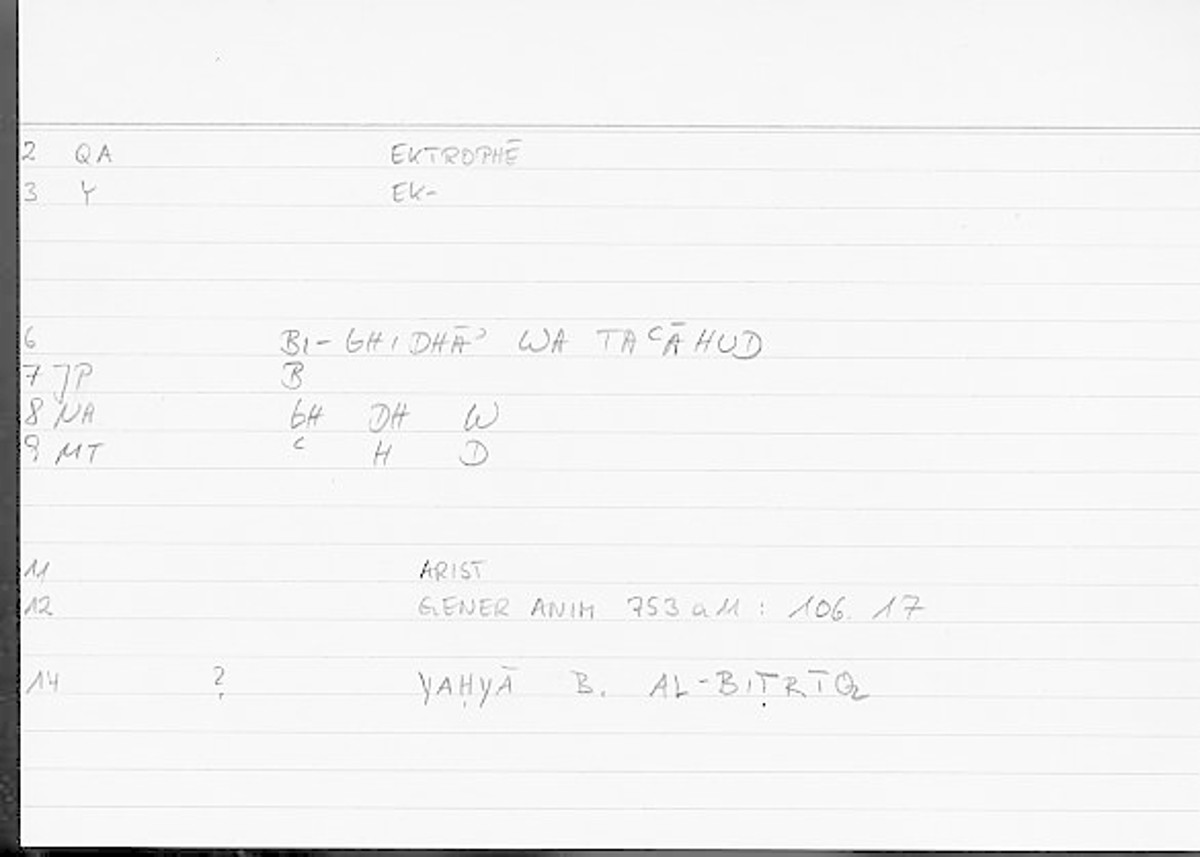 2 QA EKTROPHĒ
3 Y EK-
6 BI-GHIDHĀʾ WA TAʿĀHUD
7 JP B
8 NA GH DH W
9 MT ʿ H D
11 ARIST
12 GENER ANIM 753 a 11 : 106. 17
14 ? YAḤYĀ B. AL-BIṬRĪQ